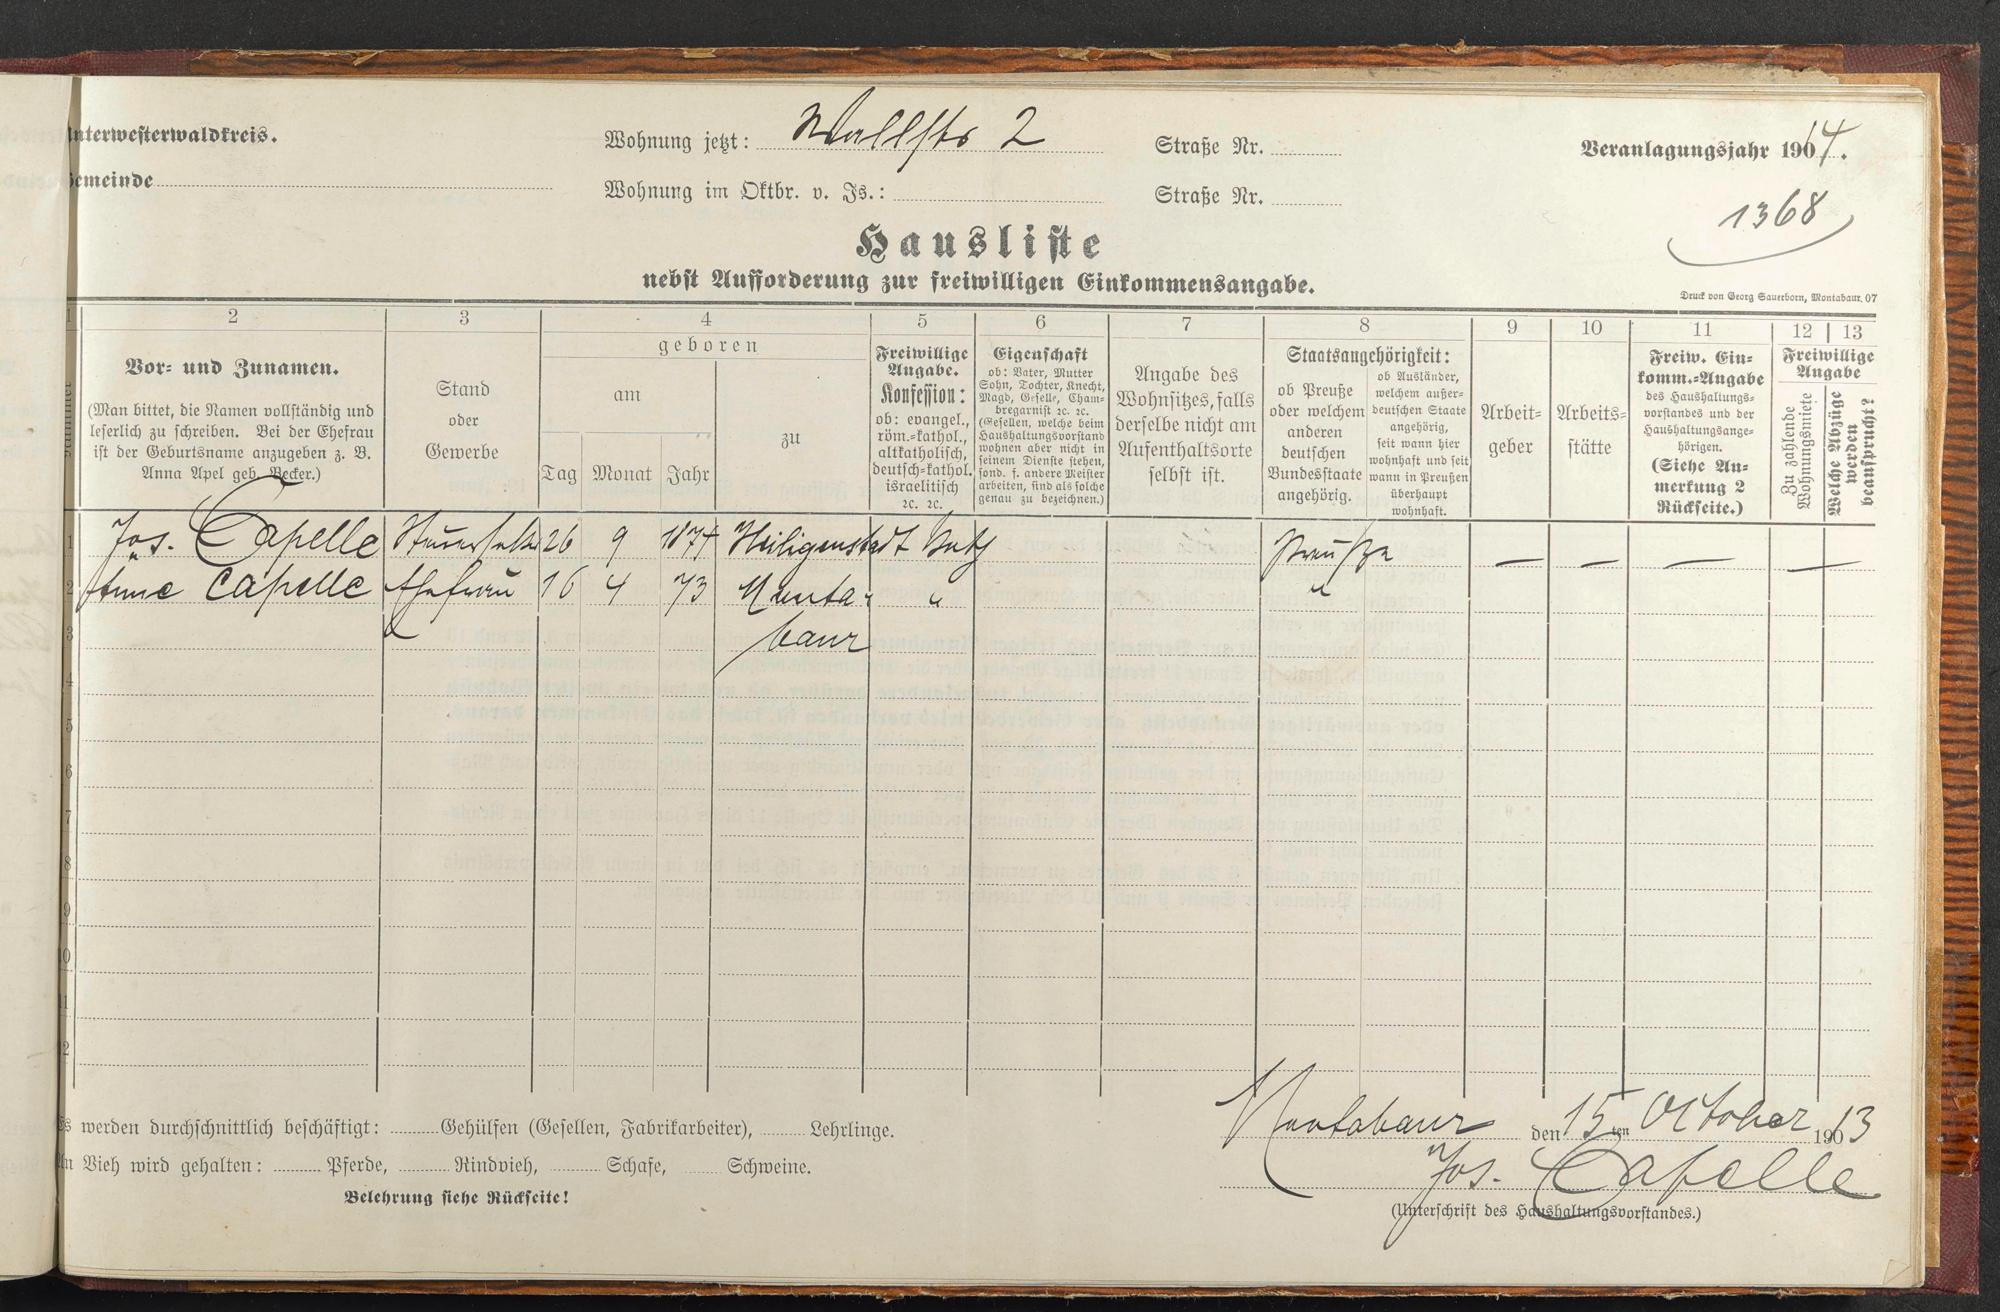 Unterwesterwaldkreis.
Wohnung jetzt: Wallstr 2 Straße Nr.
Veranlagungsjahr 1914.
Gemeinde
Wohnung im Oktbr. v. Js.: Straße Nr.
1368
Hausliste
nebst Aufforderung zur freiwilligen Einkommensangabe.
Druck von Georg Sauerborn, Montabaur. 07
1 2 3 4 5 6 7 8 9 10 11 12 13
Nummer
Vor- und Zunamen.
(Man bittet, die Namen vollständig und
leserlich zu schreiben. Bei der Ehefrau
ist der Geburtsname anzugeben z. B.
Anna Apel geb. Becker.)
Stand
oder
Gewerbe
geboren
am
Tag Monat Jahr
zu
Freiwillige
Angabe.
Konfession:
ob: evangel.,
röm.-kathol.,
altkatholisch,
deutsch-kathol.
israelitisch
ꝛc. ꝛc.
Eigenschaft
ob: Vater, Mutter
Sohn, Tochter, Knecht,
Magd, Geselle, Cham-
bregarnist ꝛc. ꝛc.
(Gesellen, welche beim
Haushaltungsvorstand
wohnen aber nicht in
seinem Dienste stehen,
sond. f. andere Meister
arbeiten, sind als solche
genau zu bezeichnen.)
Angabe des
Wohnsitzes, falls
derselbe nicht am
Aufenthaltsorte
selbst ist.
Staatsangehörigkeit:
ob Preuße
oder welchem
anderen
deutschen
Bundesstaate
angehörig.
ob Ausländer,
welchem außer-
deutschen Staate
angehörig,
seit wann hier
wohnhaft und seit
wann in Preußen
überhaupt
wohnhaft.
Arbeit-
geber
Arbeits-
stätte
Freiw. Ein-
komm.-Angabe
des Haushaltungs-
vorstandes und der
Haushaltungsange-
hörigen.
(Siehe An-
merkung 2
Rückseite.)
Freiwillige
Angabe
Zu zahlende
Wohnungsmiete
Welche Abzüge
werden
beansprucht?
1 Jos. Capelle 26 9 1874 Heiligenstadt Kath Preuße — — — —
2 Anna Capelle Ehefrau 16 4 73 Monta- " "
3 baur
4
5
6
7
8
9
10
11
12
Es werden durchschnittlich beschäftigt: Gehülfen (Gesellen, Fabrikarbeiter), Lehrlinge.
An Vieh wird gehalten: Pferde, Rindvieh, Schafe, Schweine.
Belehrung siehe Rückseite!
Montabaur den 15ten October 1913
Jos. Capelle
(Unterschrift des Haushaltungsvorstandes.)